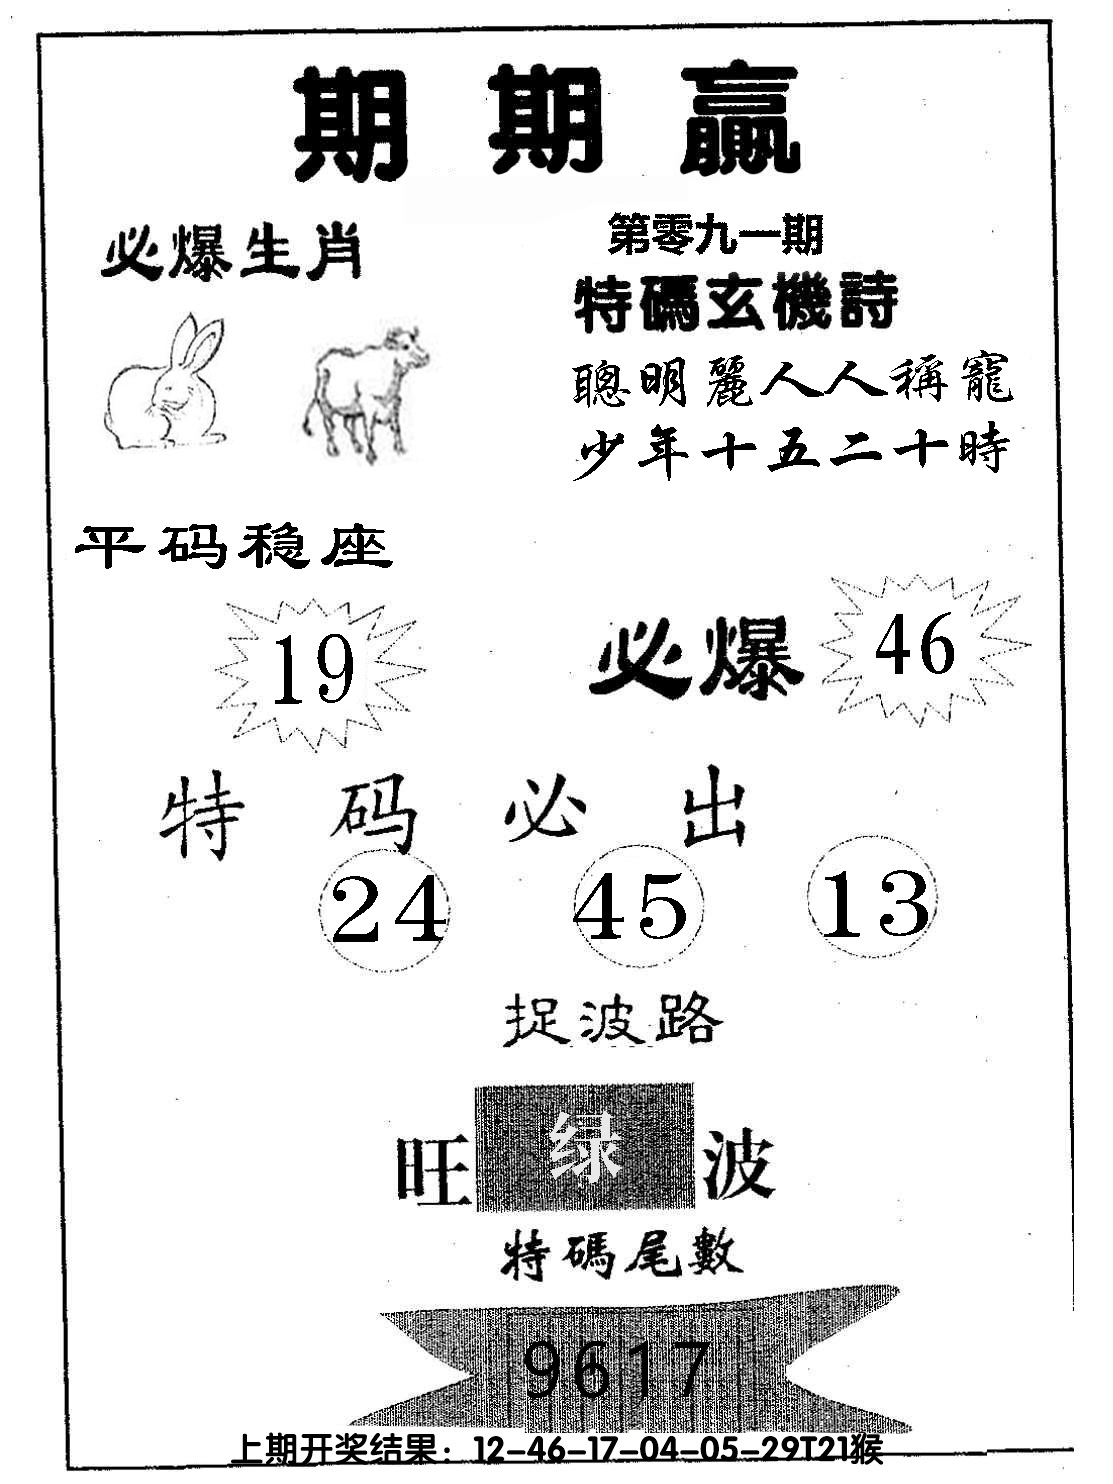 期期赢
必爆生肖
第零九一期
特碼玄機詩
聰明麗人人稱寵
少年十五二十時
平码稳座
19
必爆
46
特码必出
24 45 13
捉波路
旺 绿 波
特碼尾數
9617
上期开奖结果：12-46-17-04-05-29T21猴